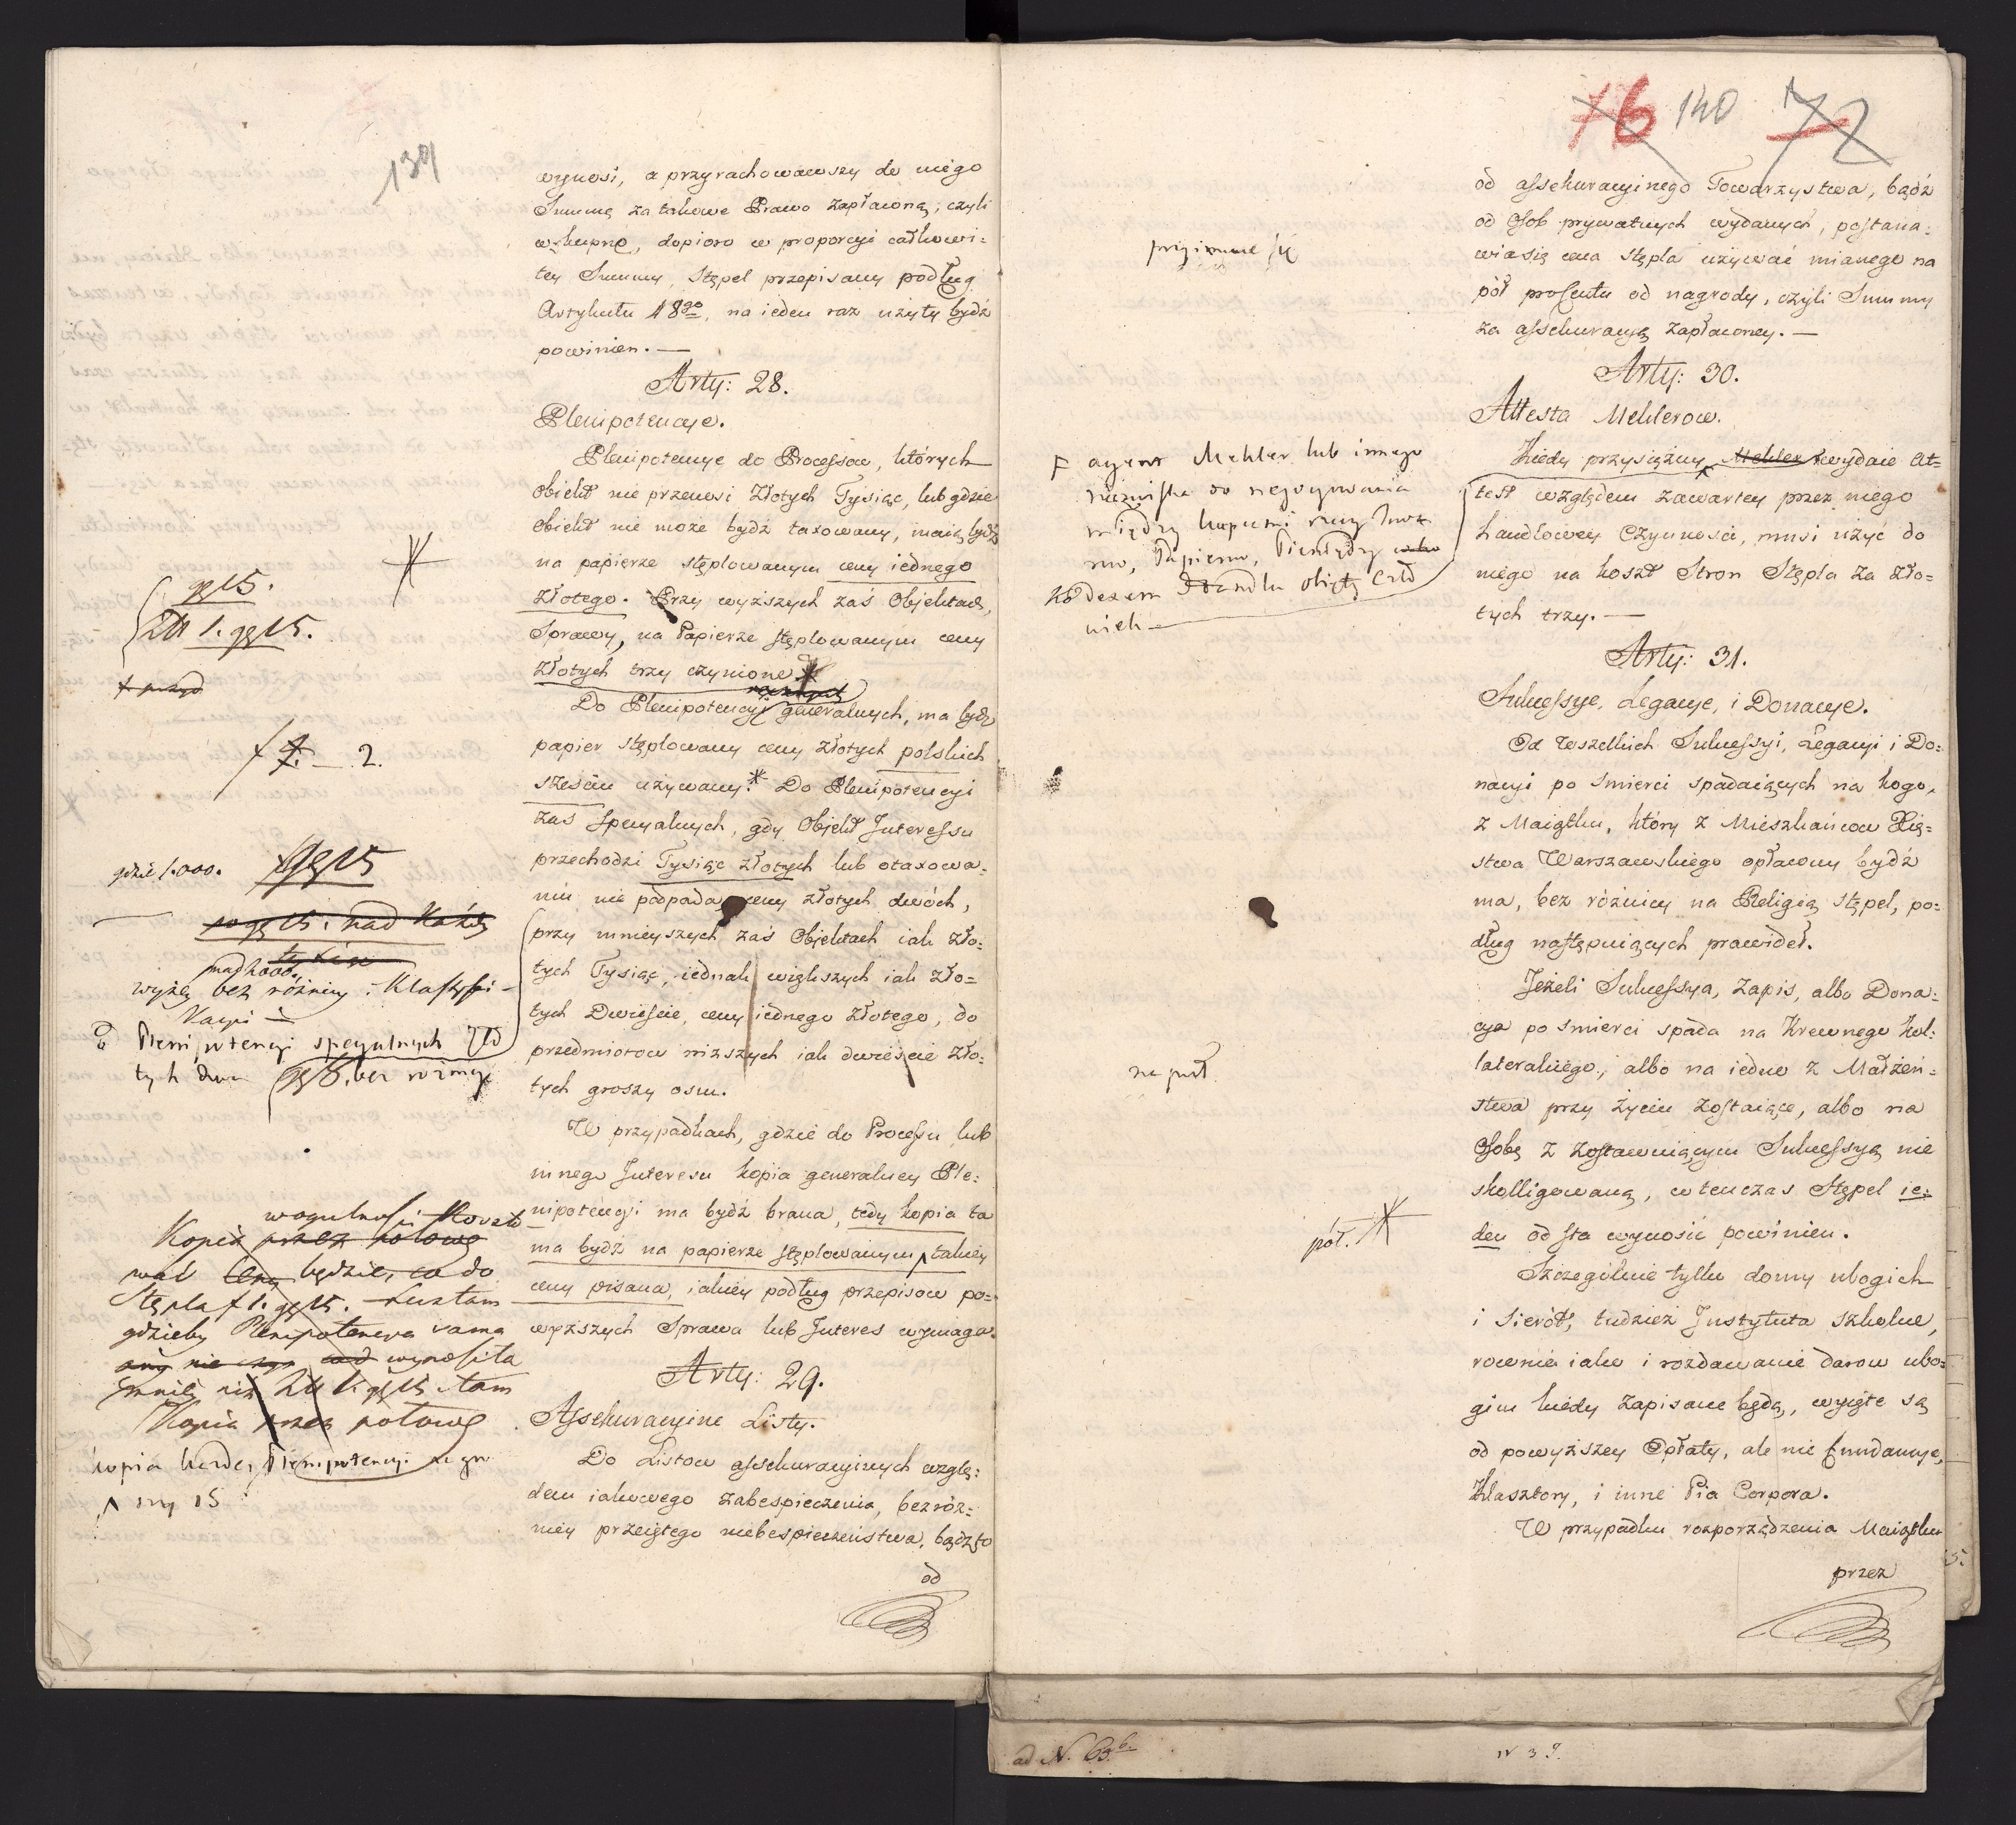 139
wynosi, a przyrachowawszy do niego
Summę za takowe Prawo zapłaconą, czyli
wkupne, dopioro w proporcyi całkowi=
tey Summy, Stępel przepisany podług
Artykułu 18go, na ieden raz użyty bydź
powinien. —
Arty: 28.
Plenipotencye.
Plenipotencye do Processow, których
Obiekt nie przenosi Złotych Tysiąc, lub gdzie
Obiekt nie może bydź taxowany, maią bydź
na papierze stęplowanym ceny iednego
złotego. Przy wyższych zaś Objektach,
Sprawy, na Papierze stęplowanym ceny
złotych trzy czynione
Do Plenipotencyi generalnych, ma bydź
papier stęplowany ceny złotych polskich
sześciu używany. * Do Plenipotencyi
zaś specyalnych, gdy Objekt Interessu
przechodzi Tysiąc złotych lub otaxowa=
niu nie podpada ceny złotych dwóch,
przy mnieyszych zaś Objektach iak zło=
tych Tysiąc, iednak większych iak zło=
tych Dwieście, ceny iednego złotego, do
przedmiotow niższych iak dwieście zło=
tych groszy osm.
W przypadkach, gdzie do Processu lub
innego Interesu kopia generalney Ple=
nipotencyi ma bydź brana, tedy kopia ta
ma bydź na papierze stęplowanym takiey
ceny pisana, iakiey podług przepisow po=
wyższych Sprawa lub Interes wymaga.
Arty: 29.
Assekuracyine Listy.
Do Listow assekuracyinych wzglę=
dem iakowego zabespieczenia, bezróż=
niey przeiętego niebespieczeństwa, bądź to
od
gę 15.
Zł 1. gę 15.
2.
gdzie 1.000.
gę 15
nad 2000.
wyżey bez różnicy Klassyfi-
kacyi —
Plenipotencyi specyalnych Zło
tych dwa bez różnicy
Kopia przez połowę
będzie, co do
Stępla f 1. gę 15.
gdzieby Plenipotencya sama
wynosiła
mniey niż Zł 1. gę 15. tam
Kopia przez połowę
kopia każdey Plenipotencyi
15
76 140 72
od assekuracyinego Towarzystwa, bądź
od Osob prywatnych wydanych, postana=
wia się cena stępla używać mianego na
pół procentu od nagrody, czyli Summy
za assekuracyą zapłaconey. —
Arty: 30.
Attesta Meklerow.
Kiedy przysiężny Mekler wydaie At=
test względem zawartey przez niego
handlowey Czynności, musi użyć do
niego na koszt Stron Stępla za zło=
tych trzy. —
Arty: 31.
Sukcessye, Legacye, i Donacye.
Od wszelkich Sukcessyi, Legacyi i Do=
nacyi po śmierci spadaiących na kogo,
z Maiątku, który z Mieszkańcow Xię=
stwa Warszawskiego opłacony bydź
ma, bez różnicy na Religią stępel, po=
dług następuiących prawideł.
Jeżeli Sukcessya, Zapis, albo Dona=
cya po śmierci spada na Krewnego kol=
lateralnego, albo na iedno z Małżeń=
stwa przy życiu zostaiące, albo na
Osobę z zostawuiącym Sukcessyą nie
skolligowaną, wtenczas Stępel ie=
den od sta wynosić powinien.
Szczególnie tylko domy ubogich
i Sierót, tudzież Instytuta szkolne,
rownie iako i rozdawanie darow ubo=
gim kiedy zapisane będą, wyięte są
od powyższey Opłaty, ale nie fundacye,
Klasztory, i inne Pia Corpora.
W przypadku rozporządzenia Maiątku
przez
przyimuie się
agent Mekler lub innego
nazwiska do negocyowania
między kupcami
Papierow, Pieniędzy
kodexem Handlu obięty
na pul.
pół. *
ad N. 63 b.
N 39.